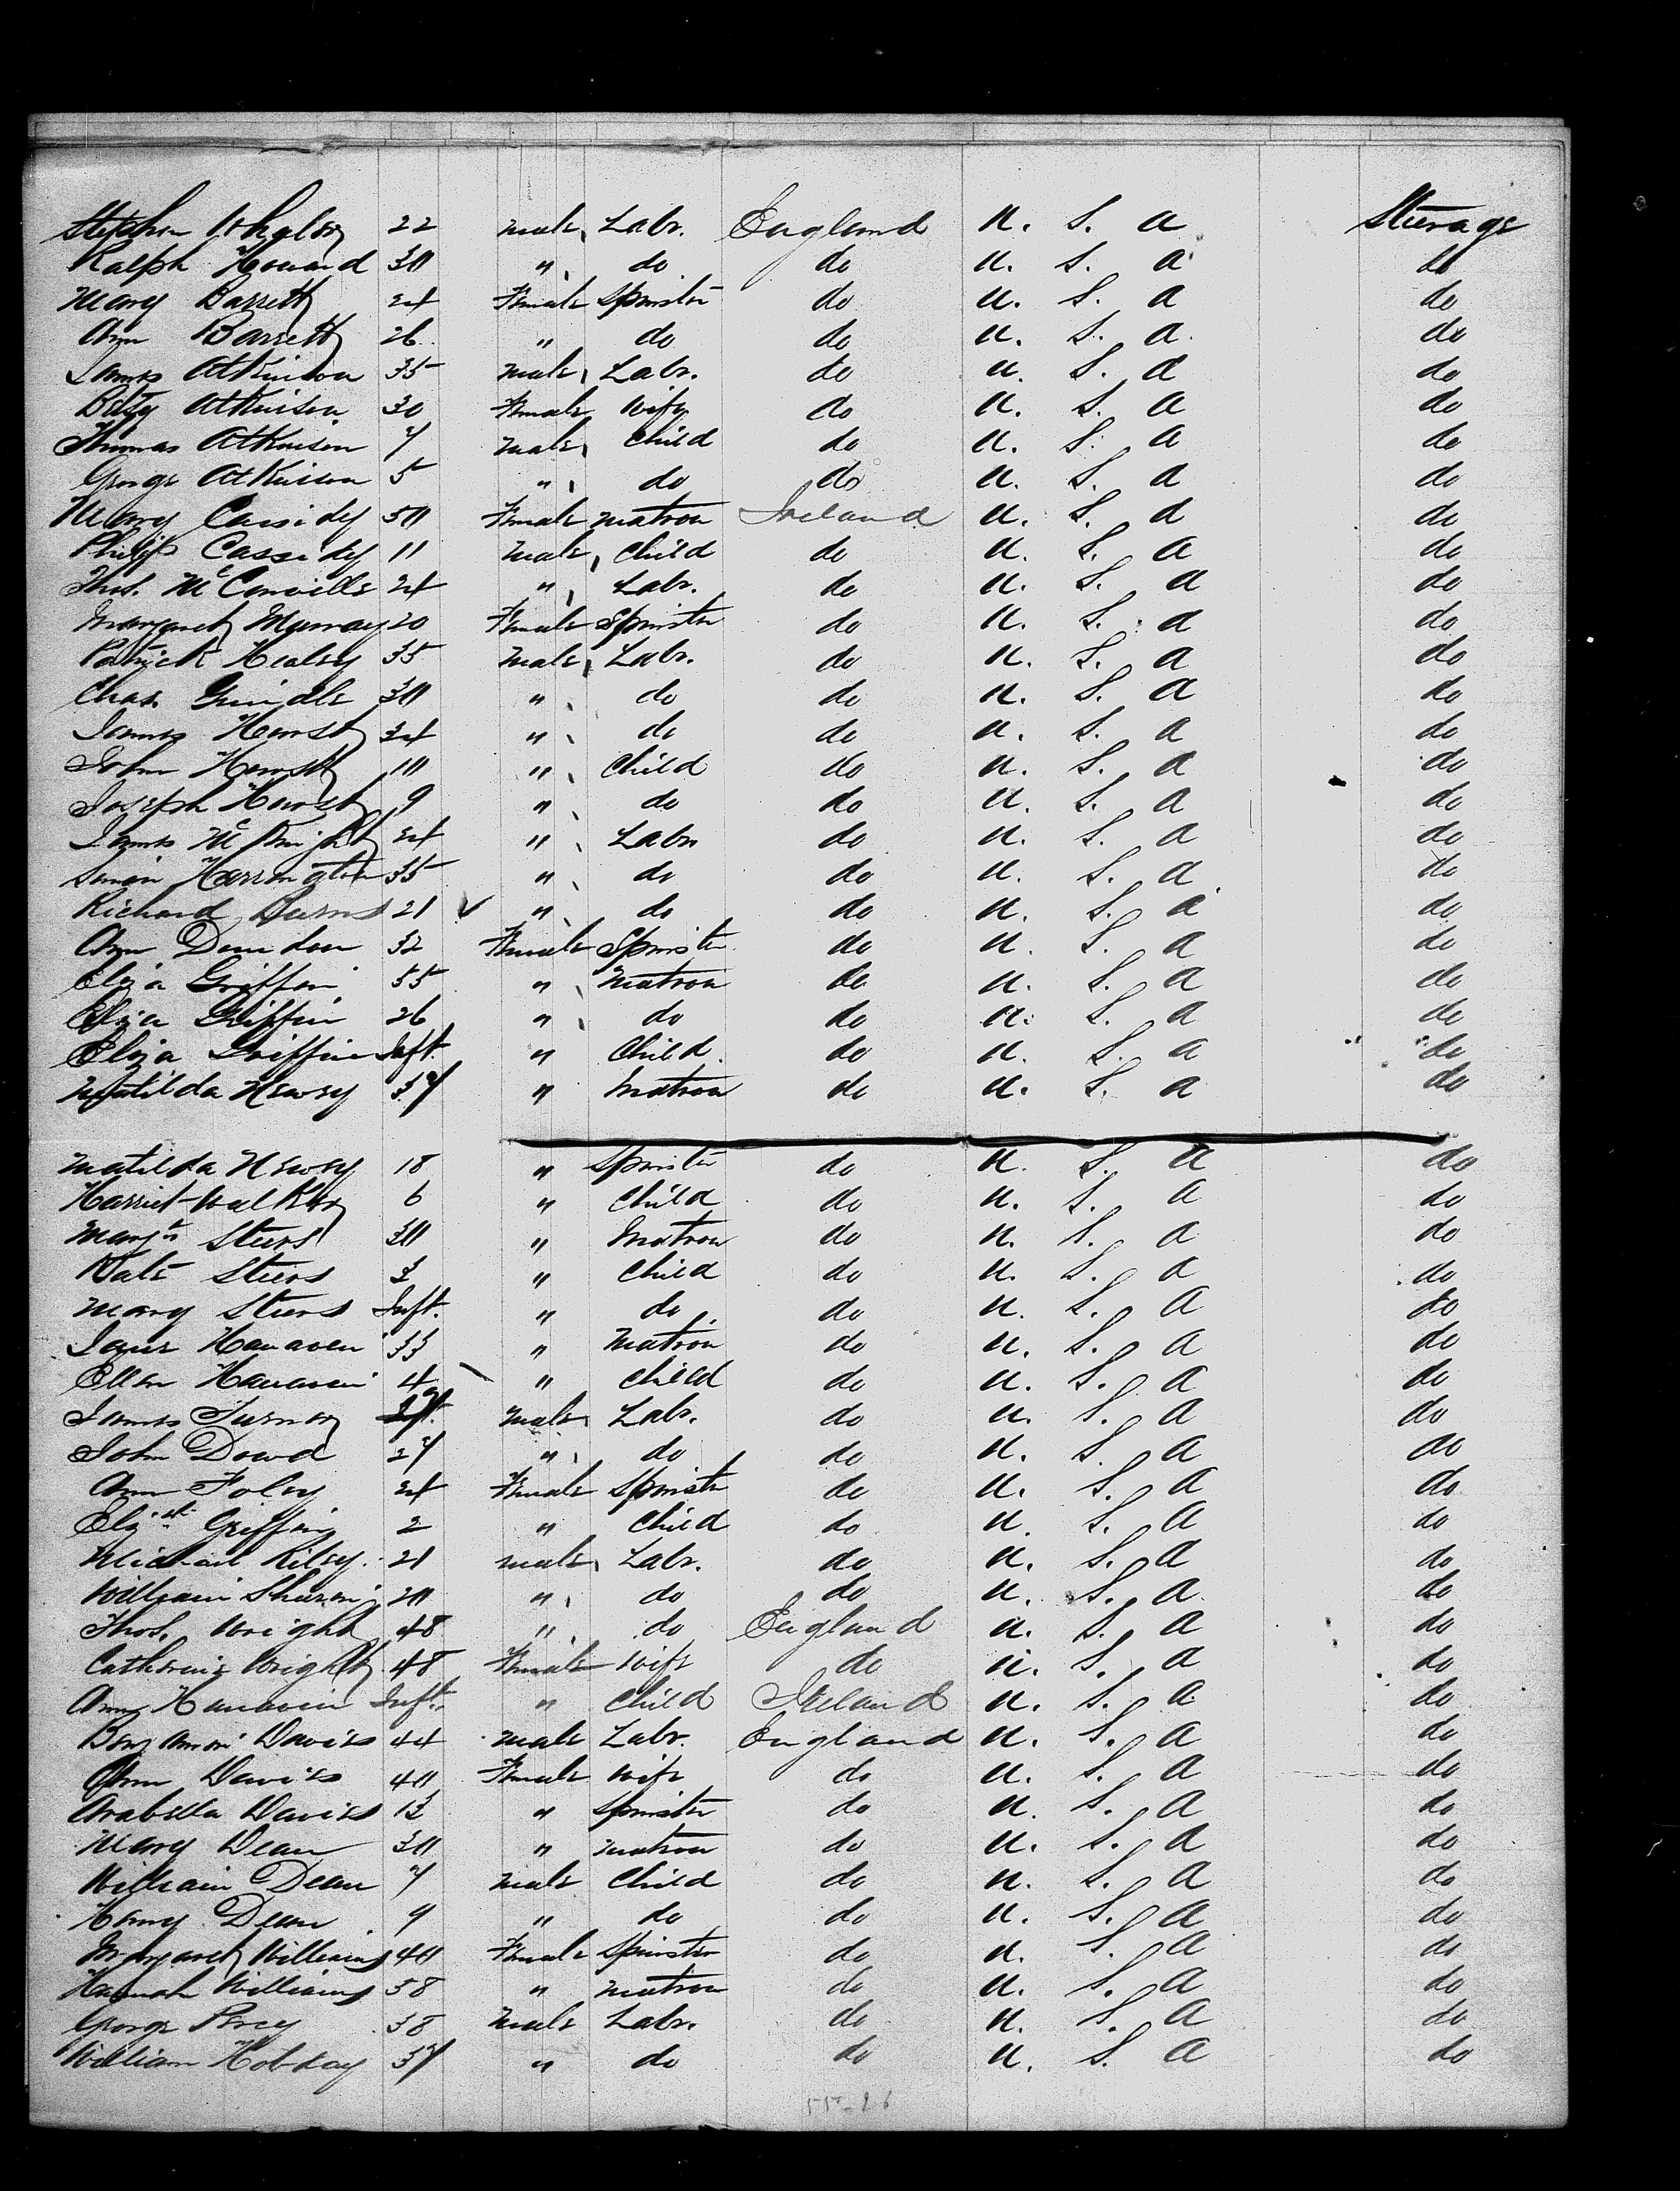 Stephen Whaley 22 male Labr. England U. S. A Steerage
Ralph Howard 30 " do do U. S. A do
Mary Barrett 24 Female Spinster do U. S. A do
Ann Barrett 26 " do do U. S. A. do
James Atkinson 35 male Labr. do U. S. A do
Betsy Atkinson 30 Female Wife do U. S. A do
Thomas Atkinson 7 male Child do U. S. A do
George Atkinson 5 " do do U. S. A do
Mary Cassidy 50 Female Matron Ireland U. S. A do
Philip Cassidy 11 male Child do U. S. A do
Thos. McConville 24 " Labr. do U. S. A do
Margaret Murray 20 Female Spinster do U. S. A do
Patrick Healey 35 male Labr. do U. S. A do
Chas. Grindle 30 " do do U. S. A do
James Hurst 34 " do do U. S. A do
John Hurst 10 " Child do U. S. A do
Joseph Hurst 9 " do do U. S. A do
James McKnight 24 " Labr do U. S. A do
Simon Harrington 35 " do do U. S. A do
Richard Burns 21 " do do U. S. A do
Ann 32 Female Spinster do U. S. A do
Eliza Griffin 55 " Matron do U. S. A do
Eliza Griffin 26 " do do U. S. A do
Eliza Griffin Inft. " Child do U. S. A do
Matilda Newey 37 " Matron do U. S. A do
Matilda Newey 18 " Spinster do U. S. A do
Harriet Walker 6 " Child do U. S. A do
Margt Steers 30 " Matron do U. S. A do
Kate Steers 3 " Child do U. S. A do
Mary Steers Inft. " do do U. S. A do
Jane Hanaven 33 " Matron do U. S. A do
Ellen Hanaven 4 " Child do U. S. A do
James Turner male Labr. do U. S. A do
John Dowd 27 " do do U. S. A do
Ann Foley 24 Female Spinster do U. S. A do
Elizth Griffin 2 " Child do U. S. A do
Michael Riley 21 male Labr. do U. S. A do
William 20 " do do U. S. A do
Thos. Wright 48 " do England U. S. A do
Catherine Wright 48 Female Wife do U. S. A do
Ann Hanaven Inft. " Child Ireland U. S. A do
Benjamin Davies 44 male Labr. England U. S. A do
Ann Davies 40 Female Wife do U. S. A do
Arabella Davies 13 " Spinster do U. S. A do
Mary Dean 30 " Matron do U. S. A do
William Dean 7 male Child do U. S. A do
Henry Dean 9 " do do U. S. A do
Margaret Williams 40 Female Spinster do U. S. A do
Hannah Williams 58 " Matron do U. S. A do
George Percy 38 male Labr. do U. S. A do
William Hobday 37 " do do U. S. A do